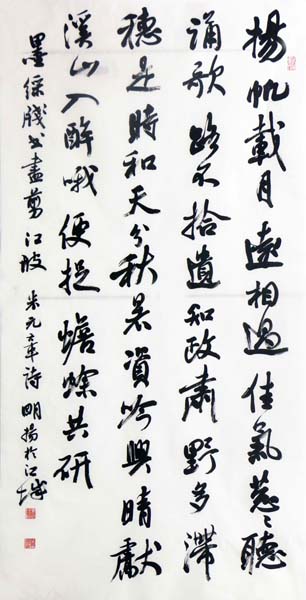 揚帆載月遠相過佳氣葱〻聽
誦歌路不拾遺知政肅野多滯
穗是時和天分秋暑資吟興晴獻
溪山入醉哦便捉蟾蜍共研
墨綵牋書盡剪江波 米元章詩 明揚於江城